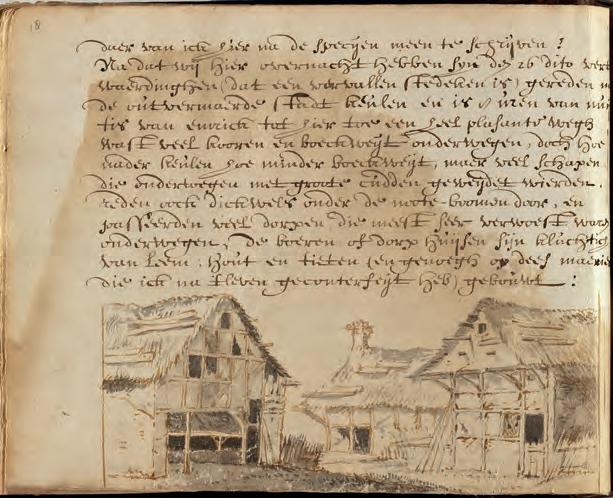 18
daer van ick hier na de specijen meen te schrijven:
Na dat wij hier overnacht hebben sijn den 26 dito
waerdinghen (dat een vervallen stedeken is) gereden
de outvermaerde stadt keulen en is 8 uren van
tis van emrick tot hier toe een heel plasante wegh
wast veel kooren en boeckweyt onderwegen, doch hoe
nader keulen hoe minder boeckweyt, maer veel schapen
die onderwegen met groote cudden geweydet wierden,
reden oock dickwels onder de note-boomen door, en
passeerden veel dorpen die meest seer verwoest
onderwegen, de boeren of dorp huijsen sijn kluchtig
van leem, hout en tieten (en genoegh op dees
die ick na tleven geconterfeyt heb) gebouwt: